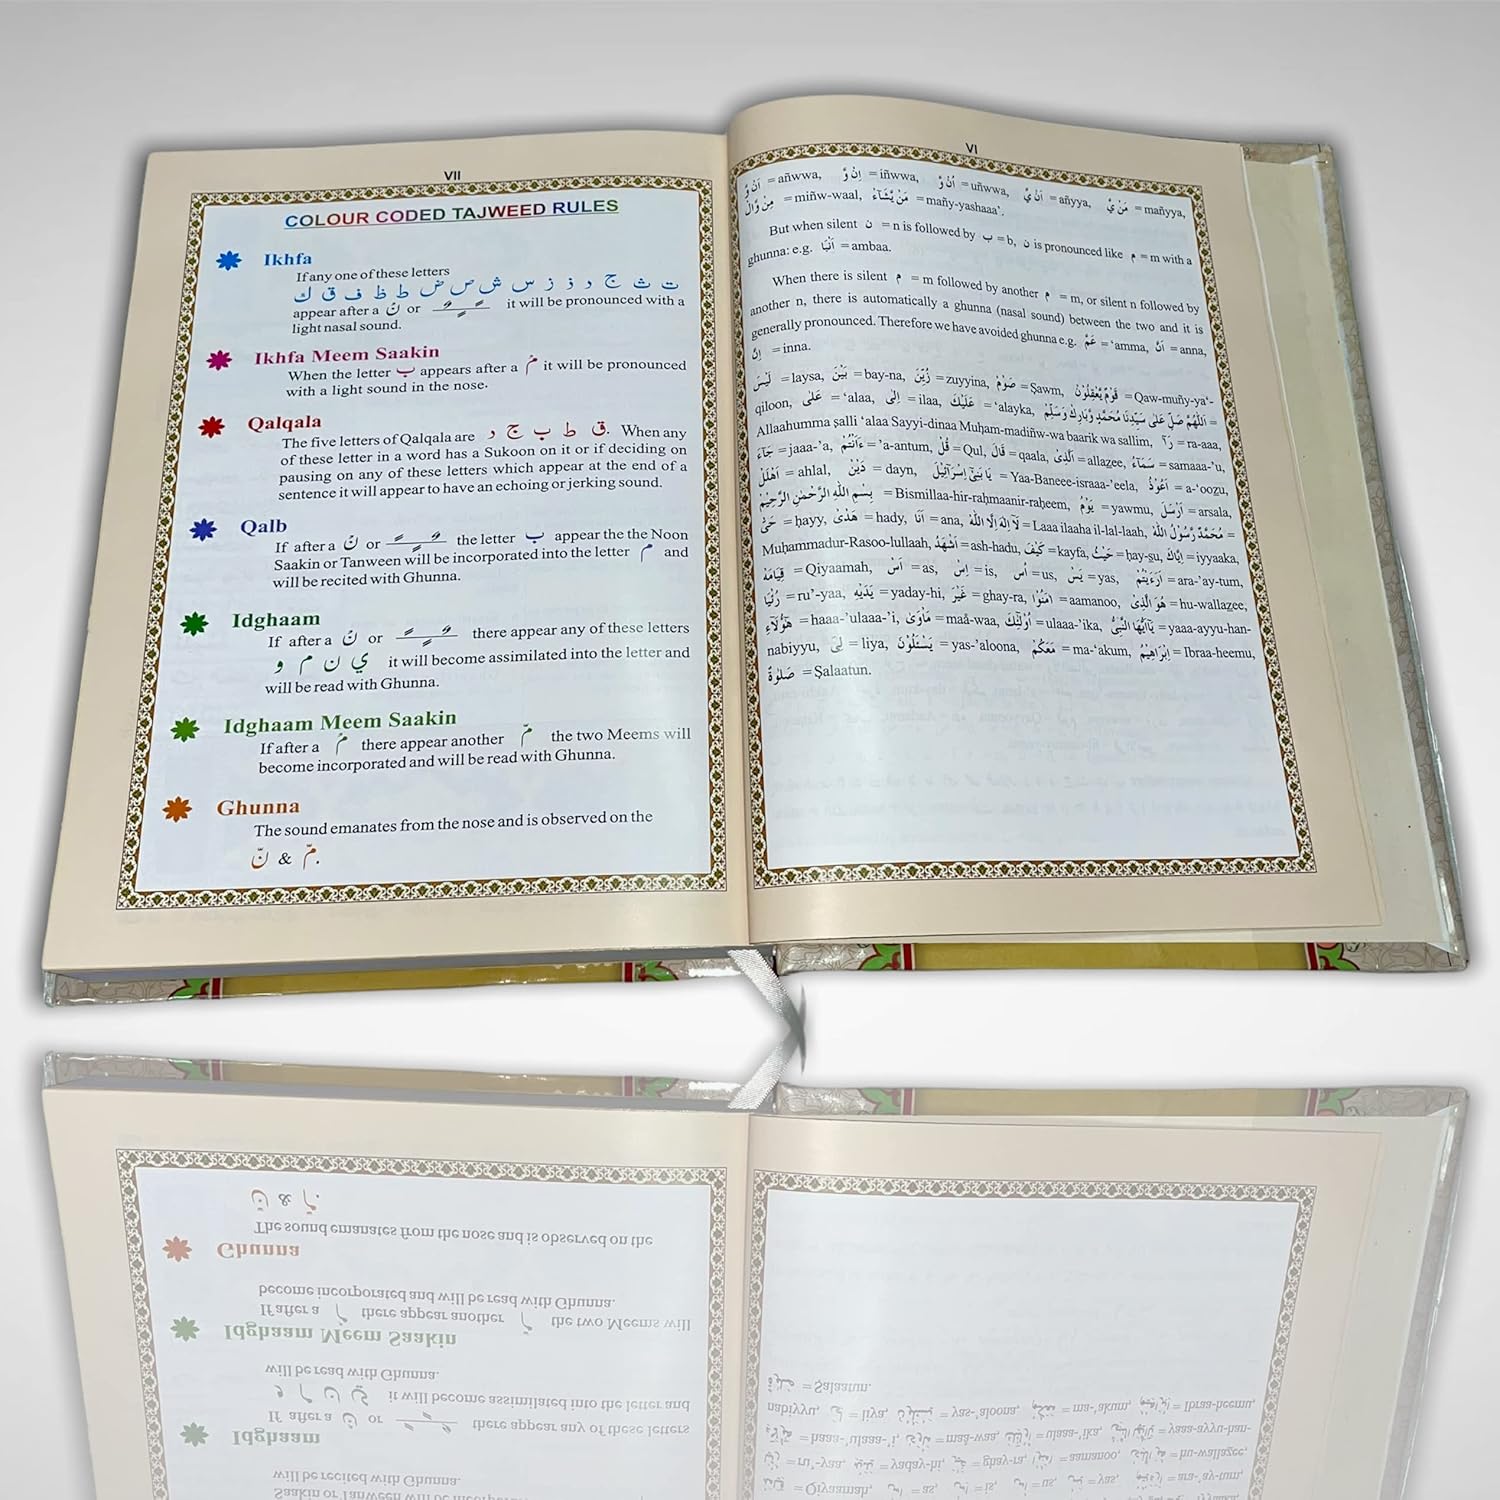 VII
COLOUR CODED TAJWEED RULES
Ikhfa
If any one of these letters
ت ث ج د ذ ز س ش ص ض ط ظ ف ق ك
appear after a نْ or ــًــٍــٌ it will be pronounced with a
light nasal sound.
Ikhfa Meem Saakin
When the letter ب appears after a مْ it will be pronounced
with a light sound in the nose.
Qalqala
The five letters of Qalqala are ق ط ب ج د. When any
of these letter in a word has a Sukoon on it or if deciding on
pausing on any of these letters which appear at the end of a
sentence it will appear to have an echoing or jerking sound.
Qalb
If after a نْ or ــًــٍــٌ the letter ب appear the the Noon
Saakin or Tanween will be incorporated into the letter م and
will be recited with Ghunna.
Idghaam
If after a نْ or ــًــٍــٌ there appear any of these letters
ي ن م و it will become assimilated into the letter and
will be read with Ghunna.
Idghaam Meem Saakin
If after a مْ there appear another مّ the two Meems will
become incorporated and will be read with Ghunna.
Ghunna
The sound emanates from the nose and is observed on the
نّ & مّ.
VI
اَنْ وَّ = añwwa, اِنْ وَّ = iñwwa, اُنْ وَّ = uñwwa, اَنْ يَّ = añyya, مَنْ يَّ = mañyya,
مِنْ وَّالٍ = miñw-waal, مَنْ يَّشَآءُ = mañy-yashaaa’.
But when silent ن = n is followed by ب = b, ن is pronounced like م = m with a
ghunna: e.g. اَنْۢبَا = ambaa.
When there is silent م = m followed by another م = m, or silent n followed by
another n, there is automatically a ghunna (nasal sound) between the two and it is
generally pronounced. Therefore we have avoided ghunna e.g. عَمَّ = ‘amma, اَنَّ = anna,
اِنَّ = inna.
لَيْسَ = laysa, بَيْنَ = bay-na, زُيِّنَ = zuyyina, صَوْمٌ = Ṣawm, قَوْمٌ يَّعْقِلُوْنَ = Qaw-muñy-ya‘-
qiloon, عَلٰى = ‘alaa, اِلٰى = ilaa, عَلَيْكَ = ‘alayka, اَللّٰهُمَّ صَلِّ عَلٰى سَيِّدِنَا مُحَمَّدٍ وَّبَارِكْ وَسَلِّمْ =
Allaahumma ṣalli ‘alaa Sayyi-dinaa Muḥam-madiñw-wa baarik wa sallim, رَآ = ra-aaa,
جَآءَ = jaaa-’a, ءَاَنْتُمْ = ’a-antum, قُلْ = Qul, قَالَ = qaala, اَلَّذِىْ = allazee, سَمَآءُ = samaaa-’u,
اَهْلَلَ = ahlal, دَيْنَ = dayn, يَا بَنِىْٓ اِسْرَآئِيْلَ = Yaa-Baneee-israaa-’eela, اَعُوْذُ = a-‘oozu,
بِسْمِ اللّٰهِ الرَّحْمٰنِ الرَّحِيْمِ = Bismillaa-hir-raḥmaanir-raḥeem, يَوْمُ = yawmu, اَرْسَلَ = arsala,
حَىّ = ḥayy, هَدْىٌ = hady, اَنَا = ana, لَآ اِلٰهَ اِلَّا اللّٰهُ = Laaa ilaaha il-lal-laah, مُحَمَّدٌ رَّسُوْلُ اللّٰهِ =
Muḥammadur-Rasoo-lullaah, اَشْهَدُ = ash-hadu, كَيْفَ = kayfa, حَيْثُ = ḥay-su, اِيَّاكَ = iyyaaka,
قِيَامَهْ = Qiyaamah, اَسْ = as, اِسْ = is, اُسْ = us, يَسْ = yas, اَرَءَيْتُمْ = ara-’ay-tum,
رُءْيَا = ru’-yaa, يَدَيْهِ = yaday-hi, غَيْرَ = ghay-ra, اٰمَنُوْا = aamanoo, هُوَ الَّذِىْ = hu-wallazee,
هٰٓؤُلَآءِ = haaa-’ulaaa-’i, مَاْوٰى = maâ-waa, اُولٰٓئِكَ = ulaaa-’ika, يٰٓاَيُّهَا النَّبِىُّ = yaaa-ayyu-han-
nabiyyu, لِىَ = liya, يَسْئَلُوْنَ = yas-’aloona, مَعَكُمْ = ma-‘akum, اِبْرَاهِيْمُ = Ibraa-heemu,
صَلٰوةٌ = Ṣalaatun.